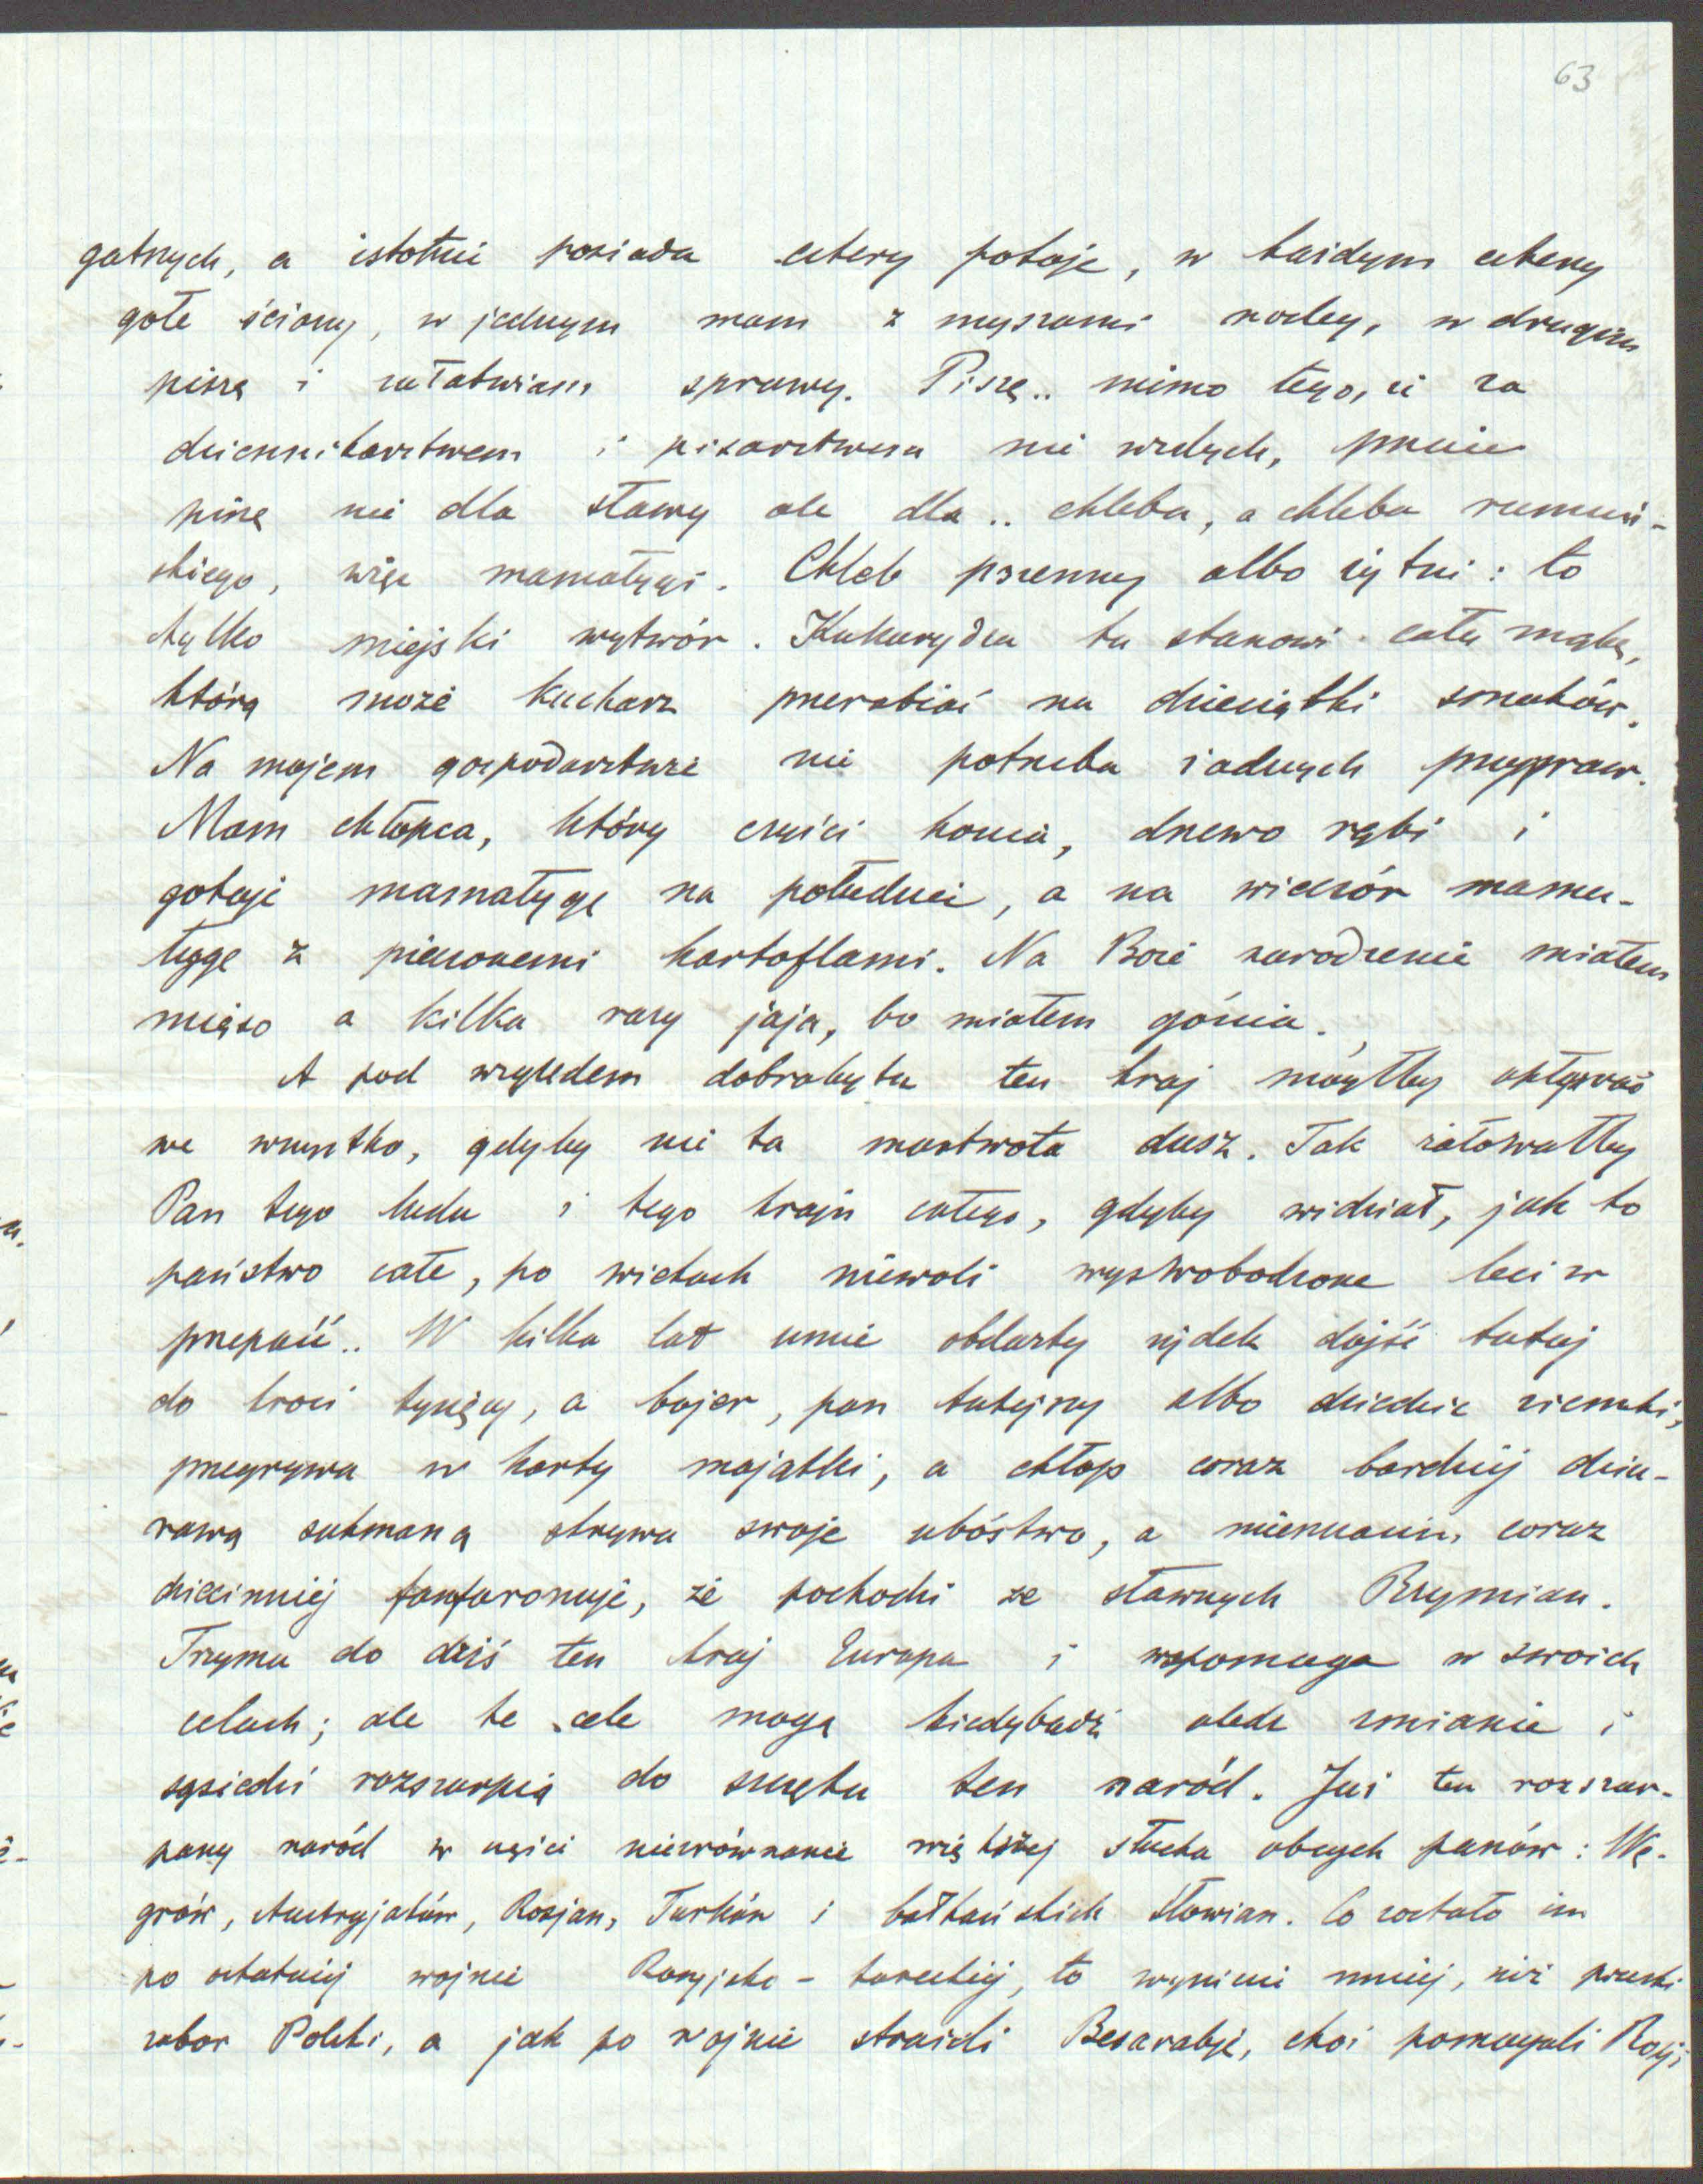 63
gatnych, a istotnie posiada cztery pokoje, w każdym cztery
gołe ściany, w jednym mam z myszami nocleg, w drugim
piszę i załatwiam sprawy. Piszę.. mimo tego, iż za
dziennikarstwem i pisarstwem nie wzdych,
piszę nie dla sławy ale dla .. chleba, a chleba rumuń-
skiego, więc mamałygi. Chleb pszenny albo żytni: to
tylko miejski wytwór. Kukurydza tu stanowi całą mąkę,
którą może kucharz przerabiać na dziesiątki smaków.
Na mojem gospodarstwie nie potrzeba żadnych przypraw.
Mam chłopca, który czyści konia, drzewo rąbi i
gotuje mamałygę na południe, a na wieczór mama-
łygę z pieczonemi kartoflami. Na Boże narodzenie miałem
mięso a kilka razy jaja, bo miałem gościa.
A pod względem dobrobytu ten kraj mógłby opływać
we wszystko, gdyby nie ta martwota dusz. Tak żałowałby
Pan tego ludu i tego kraju całego, gdyby widział, jak to
państwo całe, po wiekach niewoli wyswobodzone leci w
przepaść.. W kilka lat umie obdarty żydek dojść tutaj
do kroci tysięcy, a bojar, pan tutejszy albo dziedzic ziemski,
przegrywa w karty majątki, a chłop coraz bardziej dziu-
rawą sukmaną skrywa swoje ubóstwo, a mieszczanin, coraz
dziecinniej fanfaronuje, że pochodzi ze sławnych Rzymian.
Trzyma do dziś ten kraj Europa i wspomaga w swoich
celach; ale te cele mogą kiedybądź uledz zmianie i
sąsiedzi rozszarpią do szczętu ten naród. Już ten rozszar-
pany naród w części niezrównanie większej słucha obcych panów: Wę-
grów, Austryjaków, Rosjan, Turków i bałkańskich Słowian. Co zostało im
po ostatniej wojnie Rosyjsko-tureckiej, to wyniesie mniej, niż pruski
zabor Polski, a jak po wojnie stracili Besarabję, choć pomagali Rosji